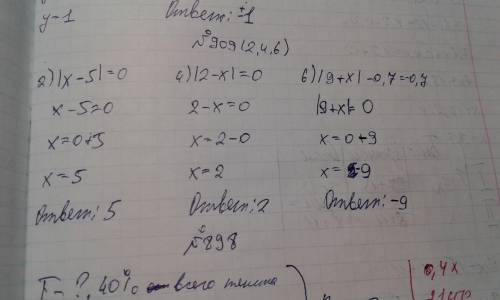 y=1 Ответ: ±1
№909(2,4,6)
2) |x-5|=0 4) |2-x|=0 6) |9+x|-0,7=-0,7
x-5=0 2-x=0 |9+x|=0
x=0+5 x=2-0 x=0+9
x=5 x=2 x=-9
Ответ: 5 Ответ: 2 Ответ: -9
№898
?, 40% всего 0,4x